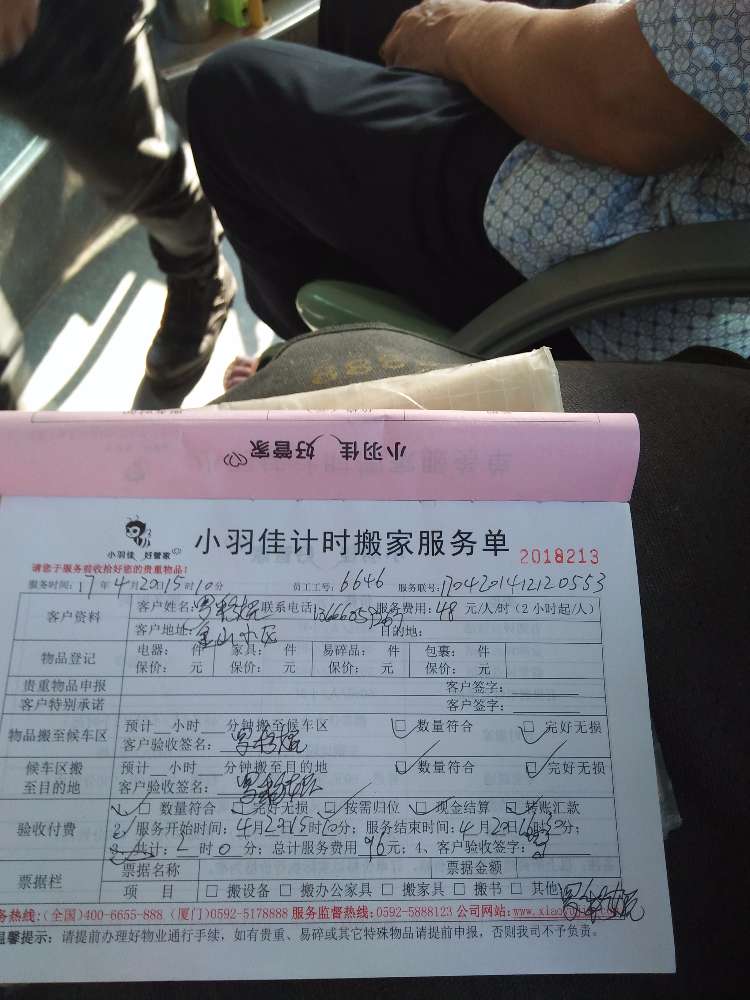 小羽佳 好管家
小羽佳 好管家
小羽佳计时搬家服务单
2018213
请您于服务前收拾好您的贵重物品!
服务时间: 17 年 4 月 20 日 15 时 10 分 员工工号: 6646 服务联号: 1704201412120553
客户资料
客户姓名: 联系电话: 服务费用: 48 元/人/时 (2 小时起/人)
客户地址: 金山小区 目的地:
物品登记
电器: 件 家具: 件 易碎品: 件 包裹: 件
保价: 元 保价: 元 保价: 元 保价: 元
贵重物品申报 客户签字:
客户特别承诺 客户签字:
物品搬至候车区
预计 小时 分钟搬至候车区 □ 数量符合 □ 完好无损
客户验收签名:
候车区搬至目的地
预计 小时 分钟搬至目的地 □ 数量符合 □ 完好无损
客户验收签名:
验收付费
□ 数量符合 □ 完好无损 □ 按需归位 □ 现金结算 □ 转账汇款
2、服务开始时间: 4月20日15时10分; 服务结束时间: 4月20日16时30分;
共计: 2 时 0 分; 总计服务费用 96 元; 4、客户验收签字:
票据栏
票据名称 票据金额
项 目 □ 搬设备 □ 搬办公家具 □ 搬家具 □ 搬书 □ 其他
务热线: (全国)400-6655-888 (厦门)0592-5178888 服务监督热线: 0592-5888123 公司网站: www.xiao
温馨提示: 请提前办理好物业通行手续, 如有贵重、易碎或其它特殊物品请提前申报, 否则我司不予负责。